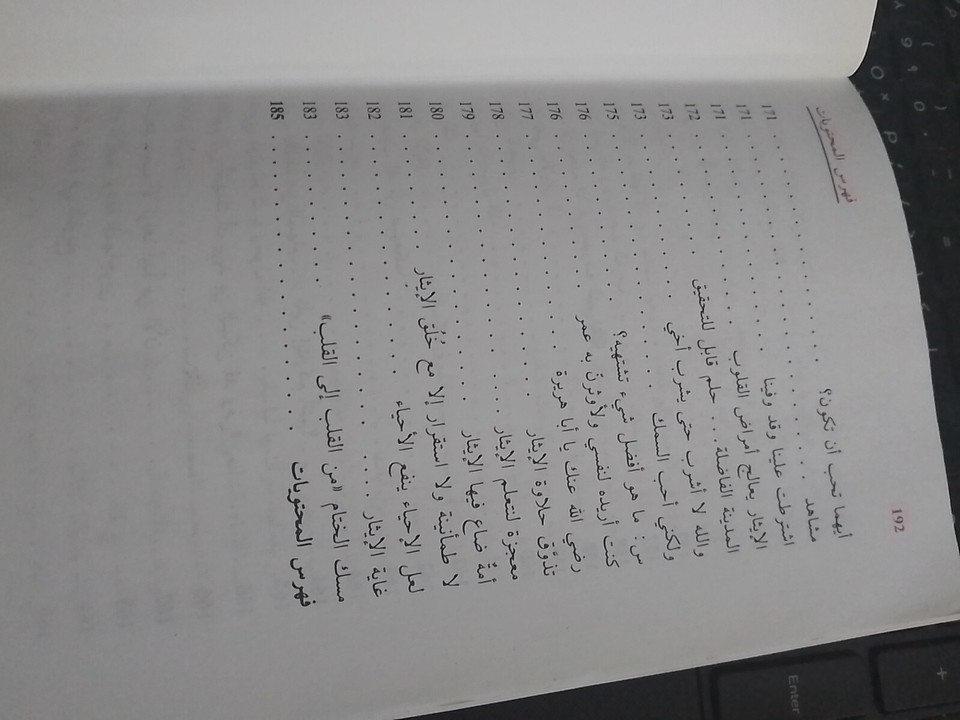 192 فهرس المحتويات
أيهما تحب أن تكون؟ . . . . . . . . . . . . . . . . 171
مشاهد . . . . . . . . . . . . . . . . . . . . 171
اشترطت علينا وقد وفينا . . . . . . . . . . . . . . . 171
الإيثار يعالج أمراض القلوب . . . . . . . . . . . . . . 172
المدينة الفاضلة... حلم قابل للتحقيق . . . . . . . . . . 173
والله لا أشرب حتى يشرب أخي . . . . . . . . . . . . 173
ولكني أحب السمك . . . . . . . . . . . . . . . . 175
س: ما هو أفضل شيء تشتهيه؟ . . . . . . . . . . . . 176
كنت أريده لنفسي ولأوثرنّ به عمر . . . . . . . . . . . 176
رضي الله عنك يا أبا هريرة . . . . . . . . . . . . . . 177
تذوّق حلاوة الإيثار . . . . . . . . . . . . . . . . 178
معجزة لتعلم الإيثار . . . . . . . . . . . . . . . . 179
أمةٌ ضاع فيها الإيثار . . . . . . . . . . . . . . . . 180
لا طمأنينة ولا استقرار إلا مع خُلُق الإيثار . . . . . . . . 181
لعل الإحياء ينفع الأحياء . . . . . . . . . . . . . . 182
غاية الإيثار . . . . . . . . . . . . . . . . . . 183
مسك الختام «من القلب إلى القلب» . . . . . . . . . . 183
فهرس المحتويات . . . . . . . . . . . . . . . . 185
Enter
+